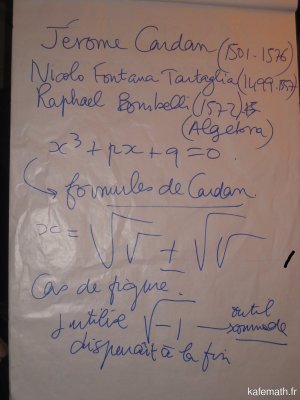 Jérome Cardan (1501-1576)
Nicolo Fontana Tartaglia (1499-1557)
Raphael Bombelli (1572)
(Algebra)
x³ + px + q = 0
formules de Cardan
x = √√ ± √√
Cas de figure.
J utilise √-1 → outil
commode
disparait à la fin
kafemath.fr